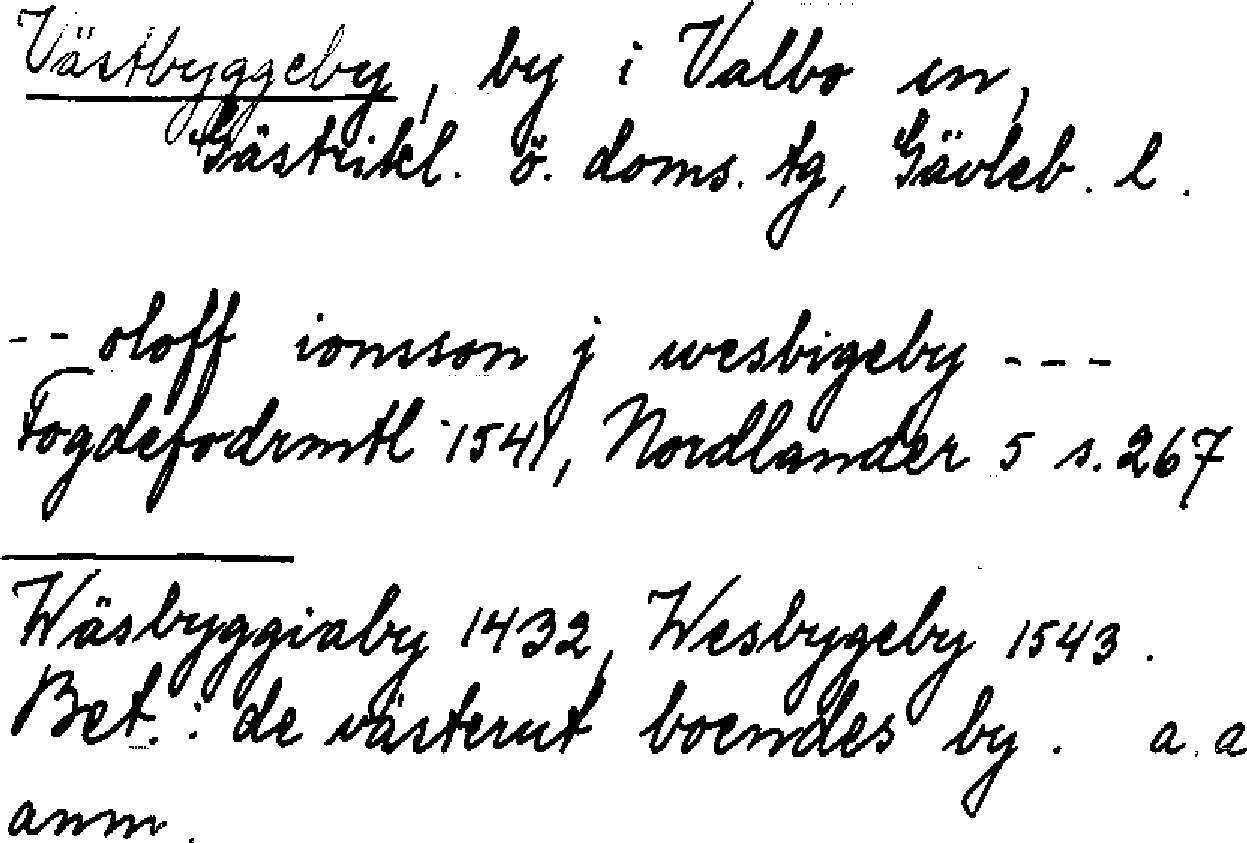 Västbyggeby, by i Valbo sn,
Gästrikl. ö. doms. tg, Gävleb. l.
-- oloff ionsson j wesbigeby ---
Fogdefodrmtl 1541, Nordlander 5 s. 267
Wäsbyggiaby 1432, Wesbygeby 1543.
Bet.: de västerut boendes by. a. a
anm.